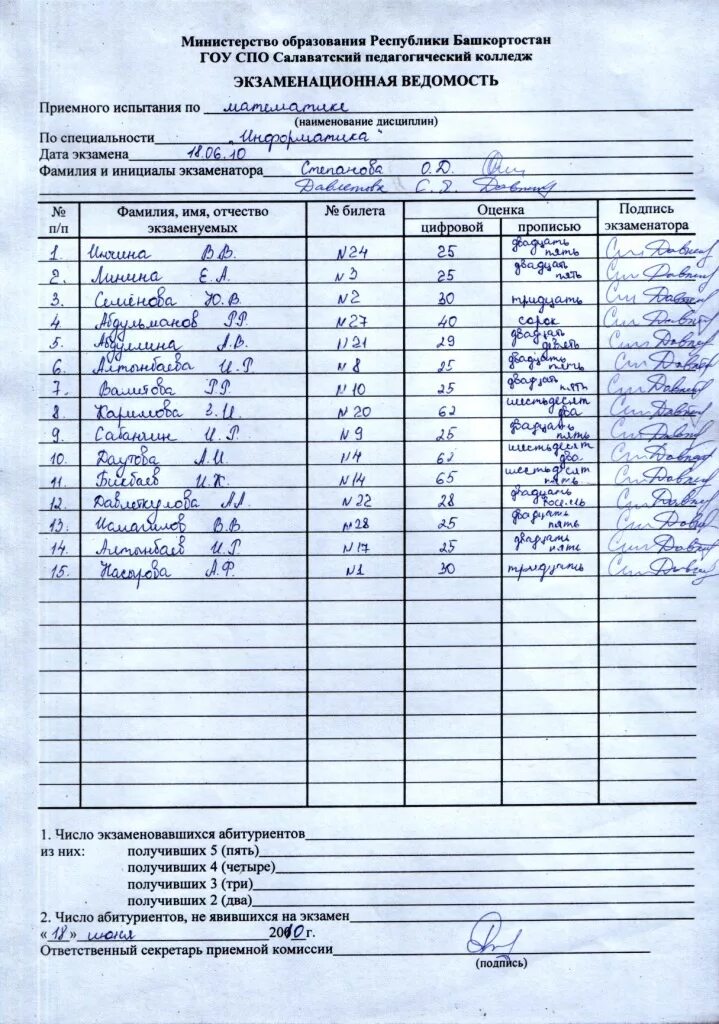 Министерство образования Республики Башкортостан
ГОУ СПО Салаватский педагогический колледж
ЭКЗАМЕНАЦИОННАЯ ВЕДОМОСТЬ
Приемного испытания по математике
(наименование дисциплин)
По специальности "Информатика"
Дата экзамена 18.06.10
Фамилия и инициалы экзаменатора Степанова О.Д.
Давлетова С.Я.
№ п/п Фамилия, имя, отчество экзаменуемых № билета Оценка Подпись экзаменатора
цифровой прописью
1. В.В. №24 25 двадцать пять
2. Линина Е.А. №3 25 двадцать пять
3. Семёнова Ю.В. №2 30 тридцать
4. Абдульманов Р.Р. №27 40 сорок
5. Абдуллина А.В. №21 29 двадцать девять
6. Алтынбаева И.Р. №8 25 двадцать пять
7. Валитова Р.Р. №10 25 двадцать пять
8. Каримова З.И. №20 62 шестьдесят два
9. Сабанчин И.Р. №9 25 двадцать пять
10. Даутова А.И. №4 62 шестьдесят два
11. Бикбаев И.Ж. №14 65 шестьдесят пять
12. Давлеткулова А.А. №22 28 двадцать восемь
13. Исмагилов В.В. №28 25 двадцать пять
14. Алтынбаев И.Р. №17 25 двадцать пять
15. Насырова А.Ф. №1 30 тридцать
1. Число экзаменовавшихся абитуриентов
из них: получивших 5 (пять)
получивших 4 (четыре)
получивших 3 (три)
получивших 2 (два)
2. Число абитуриентов, не явившихся на экзамен
«18» июня 2010 г.
Ответственный секретарь приемной комиссии
(подпись)